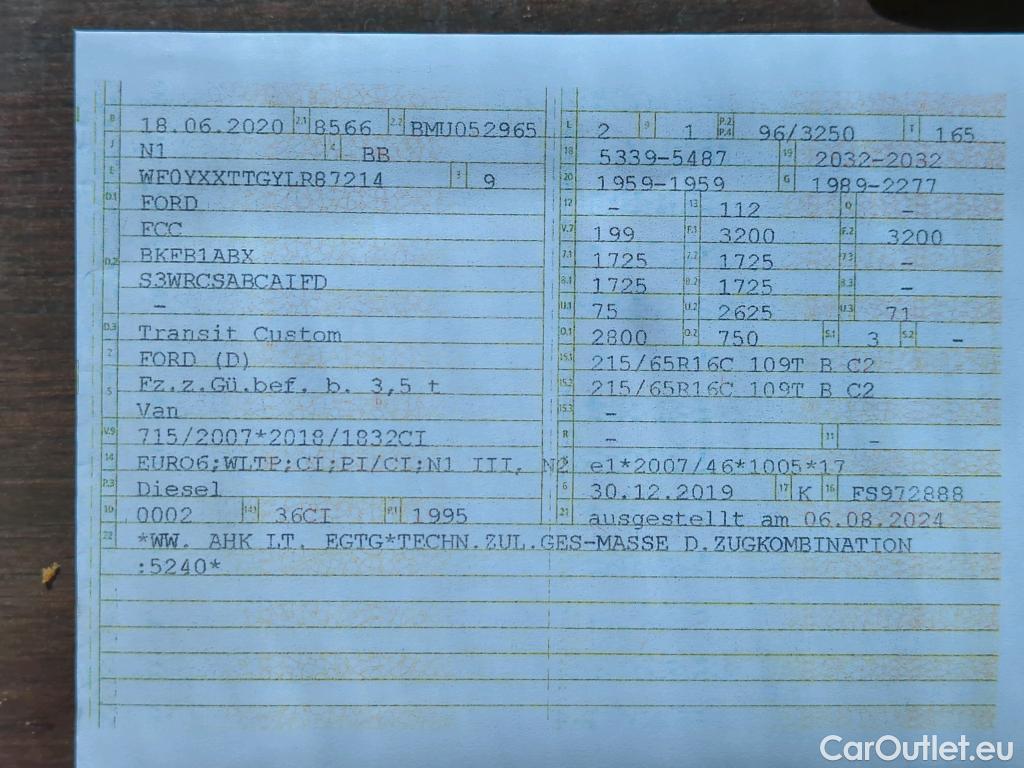 B 18.06.2020 2.1 8566 2.2 BMU052965
J N1 4 BB
E WF0YXXTTGYLR87214 3 9
D.1 FORD
FCC
D.2 BKFB1ABX
S3WRCSABCAIFD
–
D.3 Transit Custom
2 FORD (D)
5 Fz.z.Gü.bef. b. 3,5 t
Van
V.9 715/2007*2018/1832CI
14 EURO6;WLTP;CI;PI/CI;N1 III, N2
P.3 Diesel
10 0002 14.1 36CI P.1 1995
L 2 9 1 P.2 P.4 96/3250 T 165
18 5339-5487 19 2032-2032
20 1959-1959 G 1989-2277
12 – 13 112 Q –
V.7 199 F.1 3200 F.2 3200
7.1 1725 7.2 1725 7.3 –
8.1 1725 8.2 1725 8.3 –
U.1 75 U.2 2625 U.3 71
O.1 2800 O.2 750 S.1 3 S.2 –
15.1 215/65R16C 109T B C2
15.2 215/65R16C 109T B C2
15.3 –
R – 11 –
K e1*2007/46*1005*17
6 30.12.2019 17 K 16 FS972888
21 ausgestellt am 06.08.2024
22 *WW. AHK LT. EGTG*TECHN.ZUL.GES-MASSE D.ZUGKOMBINATION
:5240*
CarOutlet.eu